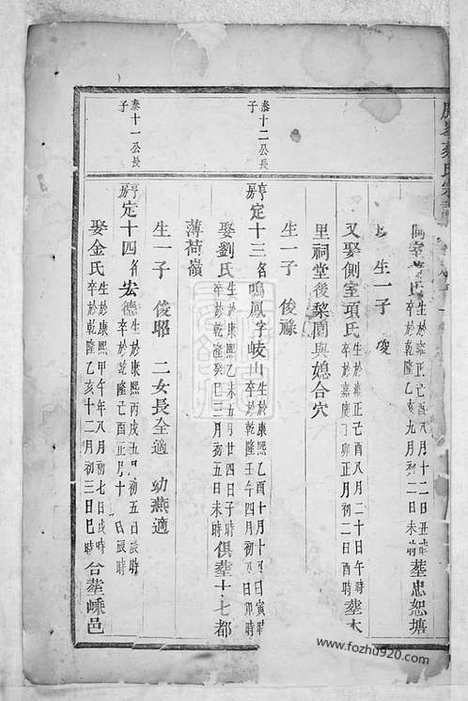 氏生於雍正 八月十二日丑時
卒於乾隆乙亥九月初二日 時葬忠恕塘
生一子 俊
又娶側室項氏生於雍正己酉八月二十日午時
卒於嘉慶丁卯正月初二日酉時葬本
里祠堂後梨園與媳合穴
生一子 俊豫
泰十二公長
子
亨房定十三名鳴鳳字岐山生於康熙乙酉十月十五日寅時
卒於乾隆壬午四月初 日卯時
娶劉氏生於康熙乙未五月廿四日子時
卒於乾隆癸巳三月初五日未時俱葬十七都
薄荷嶺
生一子 俊昭 二女長全適 幼燕適
泰十一公長
子
亨房定十四名宏德生於康熙丙戌五月初五日辰時
卒於乾隆己酉正月十 日辰時
娶金氏生於康熙甲午年八月初七日戌時
卒於乾隆乙亥十二月初三日巳時合葬嵊邑
www.fozhu920.com